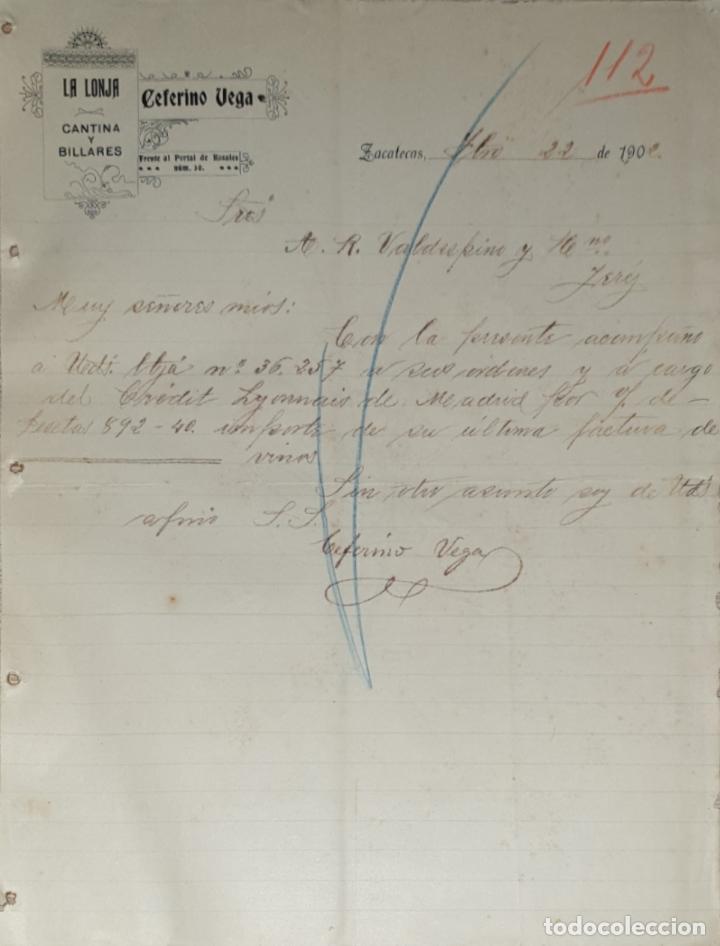 112
LA LONJA
CANTINA
Y
BILLARES
Ceferino Vega
Frente al Portal de Rosales
NÚM. 10.
Zacatecas, 22 de 1902.
Sres
A. R. Valdespino y Hno.
Jerez
Muy señores mios:
Con la presente acompaño
á Uds. nº 36.257 a sus órdenes y á cargo
del Crédit Lyonnais de Madrid por de-
Pesetas 892-40. importe de su última factura de
vinos
Sin otro asunto soy de Uds
afmo S. S.
Ceferino Vega
todocoleccion